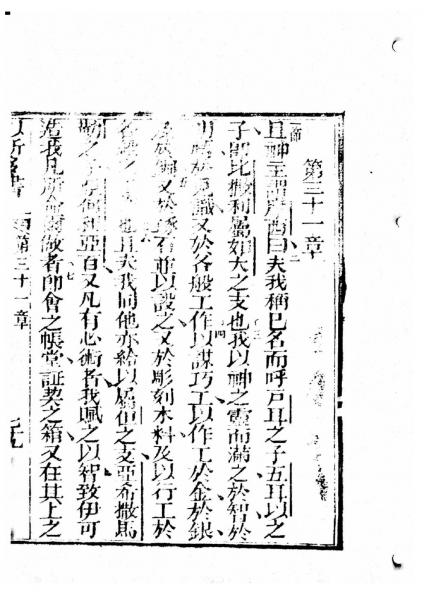 第三十一章
一節 且神主謂摩西曰夫我稱已名而呼戶耳之子五耳以之
子即比撒利葛如大之支也我以神之靈而滿之於智於
明於知識又於各般工作以謀巧工以作工於金於銀
於銅又於石並以設之又於彫刻木料及以行工於
也且夫我同他亦給以屬但之支亞希撒馬
之子何利亞百又凡有心術者我賦之以智致伊可
造我凡所做者即會之帳堂証契之箱又在其上之
第三十一章